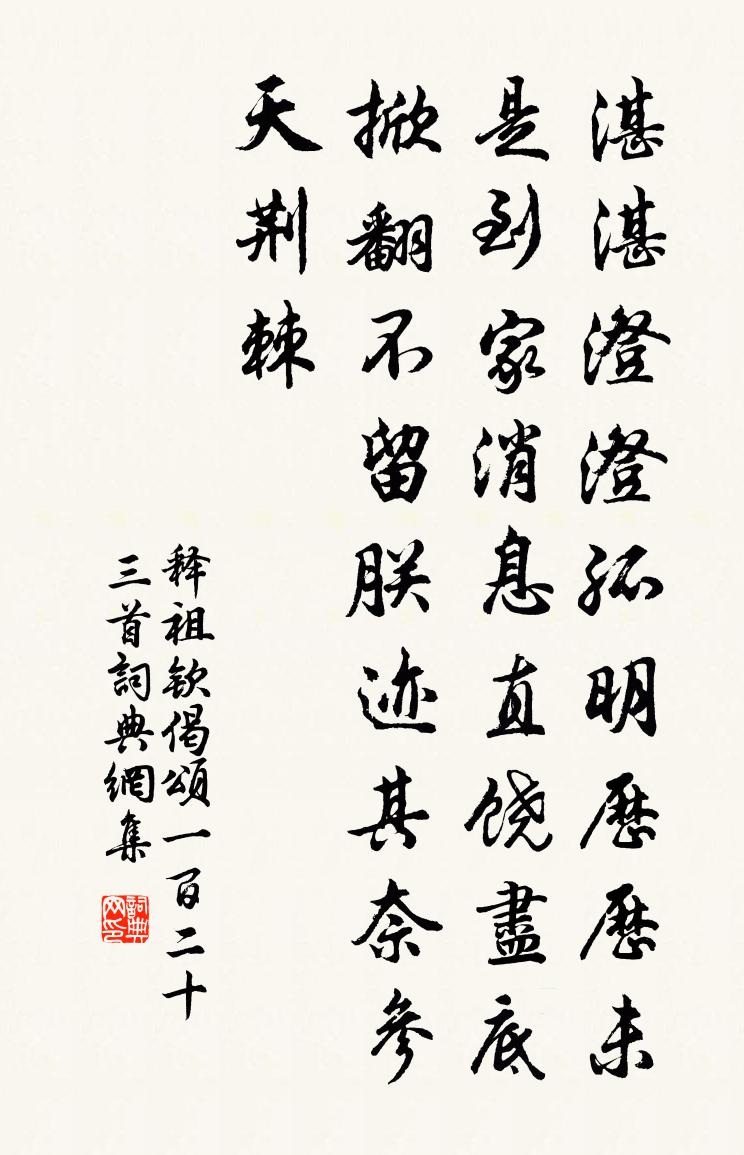 湛湛澄澄孤明歷歷未
是到家消息直饶盡底
掀翻不留朕迹其奈參
天荆棘
释祖钦偈頌一百二十
三首詞典網集
詞典网印